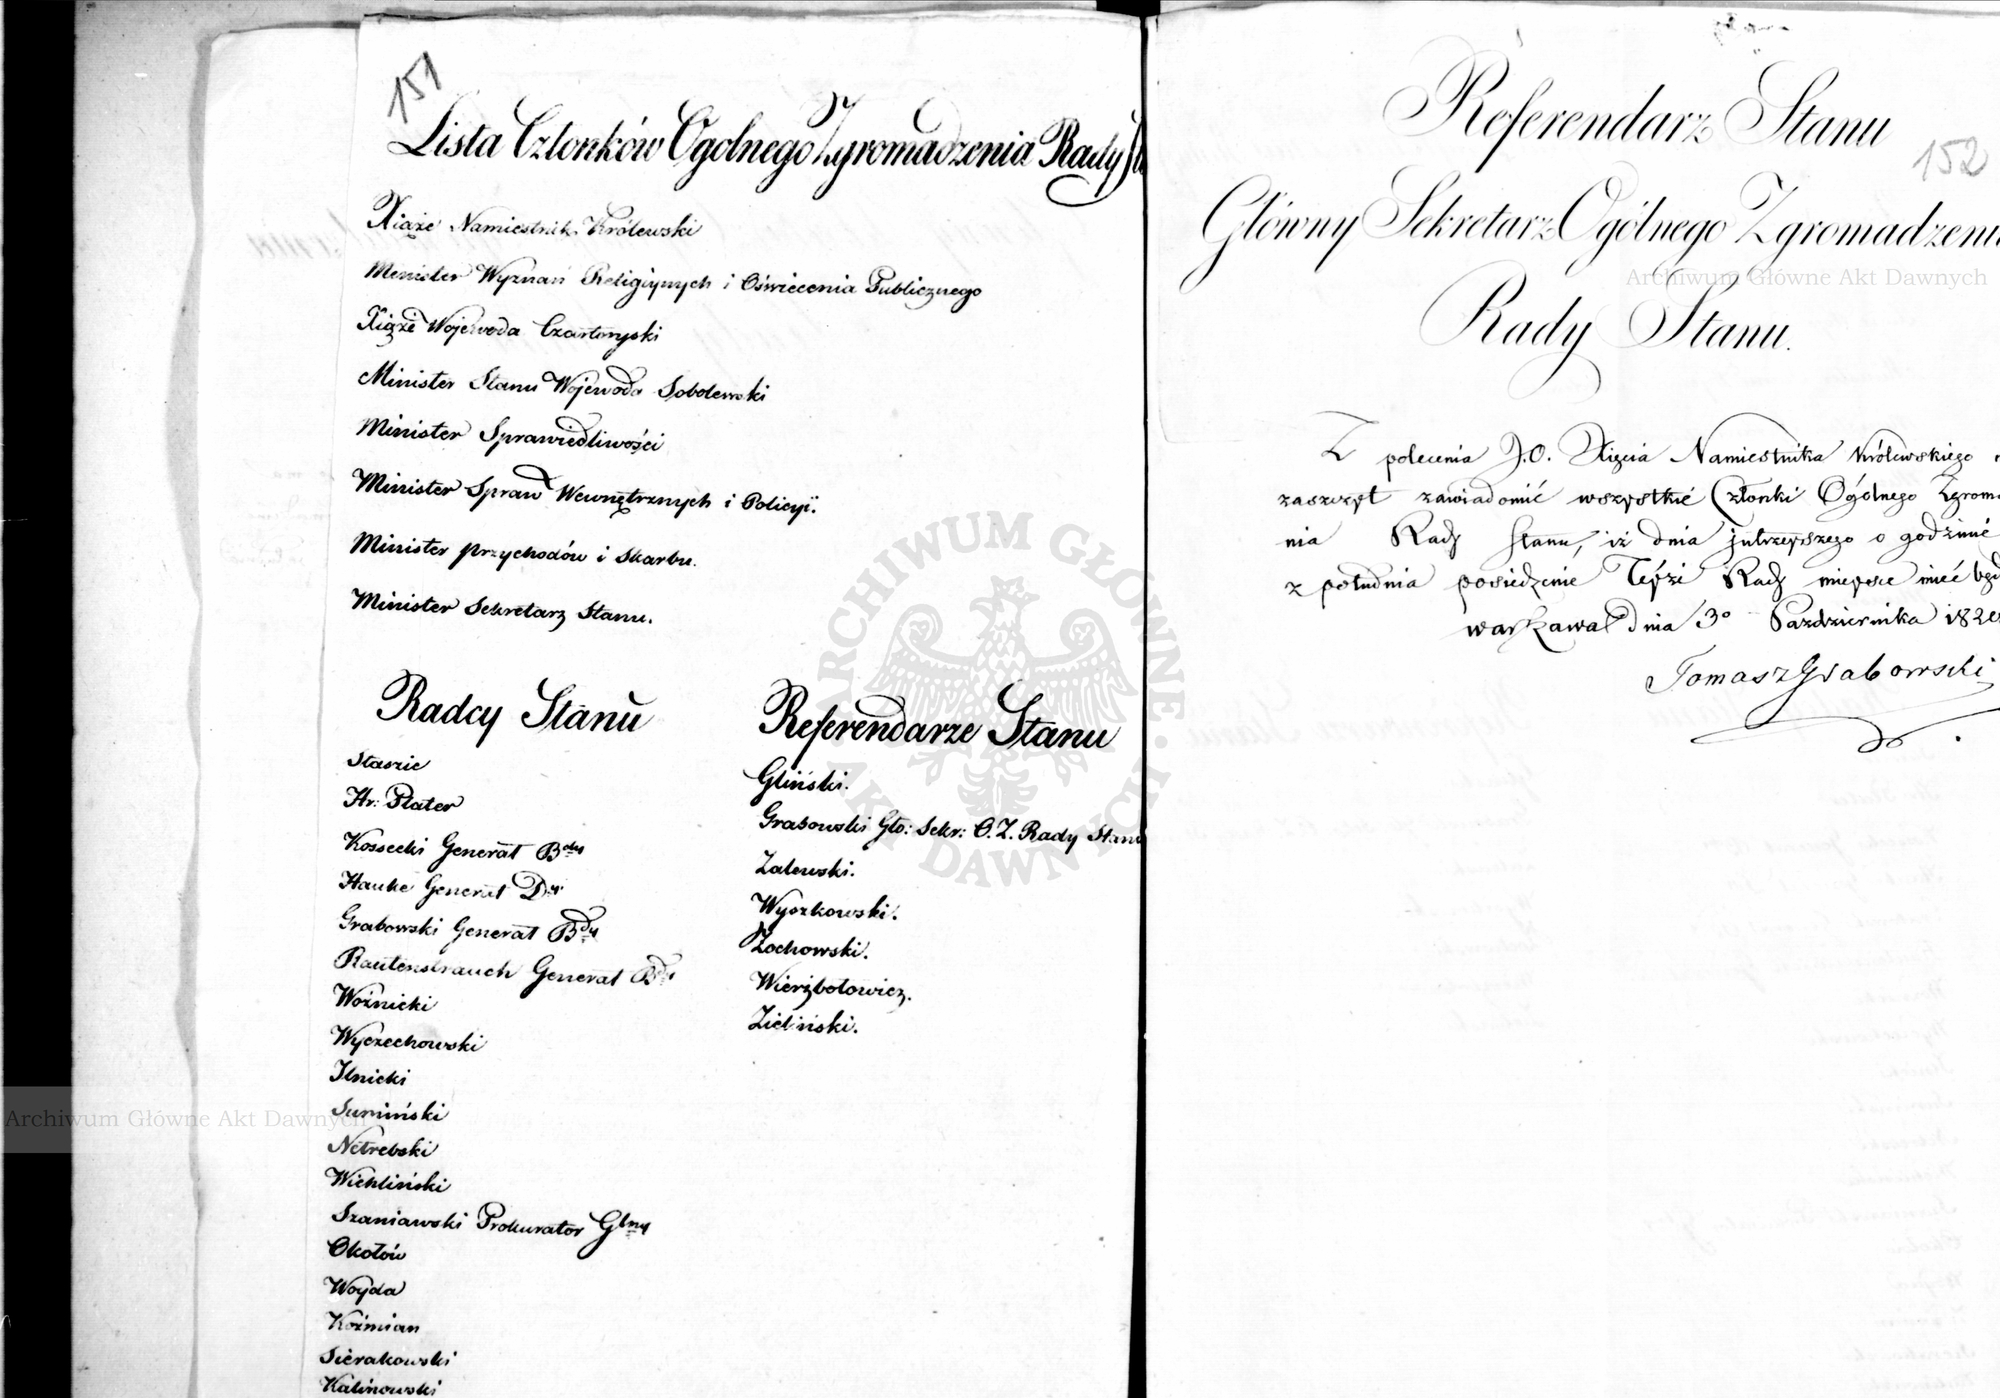 151
Lista Członków Ogolnego Zgromadzenia Rady
Xiąże Namiestnik Królewski
Minister Wyznań Religiynych i Oświecenia Publicznego
Xiąże Wojewoda Czartoryski
Minister Stanu Wojewoda Sobolewski
Minister Sprawiedliwości
Minister Spraw Wewnętrznych i Policyi.
Minister przychodów i Skarbu.
Minister Sekretarz Stanu.
Radcy Stanu
Staszic
Hr: Plater
Kossecki Generał Bdy
Hauke Generał Dyi
Grabowski Generał Bdy
Rautenstrauch Generał Bdy
Woźnicki
Wyczechowski
Ilnicki
Sumiński
Netrebski
Wichliński
Szaniawski Prokurator Glny
Okołów
Woyda
Koźmian
Sierakowski
Kalinowski
Referendarze Stanu
Gliński.
Grabowski Gło: Sekr: O. Z. Rady Stanu
Zalewski.
Wyszkowski.
Żochowski.
Wierzbołowicz.
Zieliński.
152
Referendarz Stanu
Główny Sekretarz Ogólnego Zgromadzeni
Rady Stanu.
Z polecenia J.O. Xięcia Namiestnika Królewskiego
zaszczyt zawiadomić wszystkie Członki Ogólnego Zgroma
nia Rady Stanu, iż dnia jutrzeyszego o godzinie
z południa posiedzenie Teyże Rady mieysce mieć będ
warszawa dnia 3o Października 182
Tomasz Grabowski
Archiwum Główne Akt Dawnych
Archiwum Główne Akt Dawnych
ARCHIWUM GŁÓWNE AKT DAWNYCH